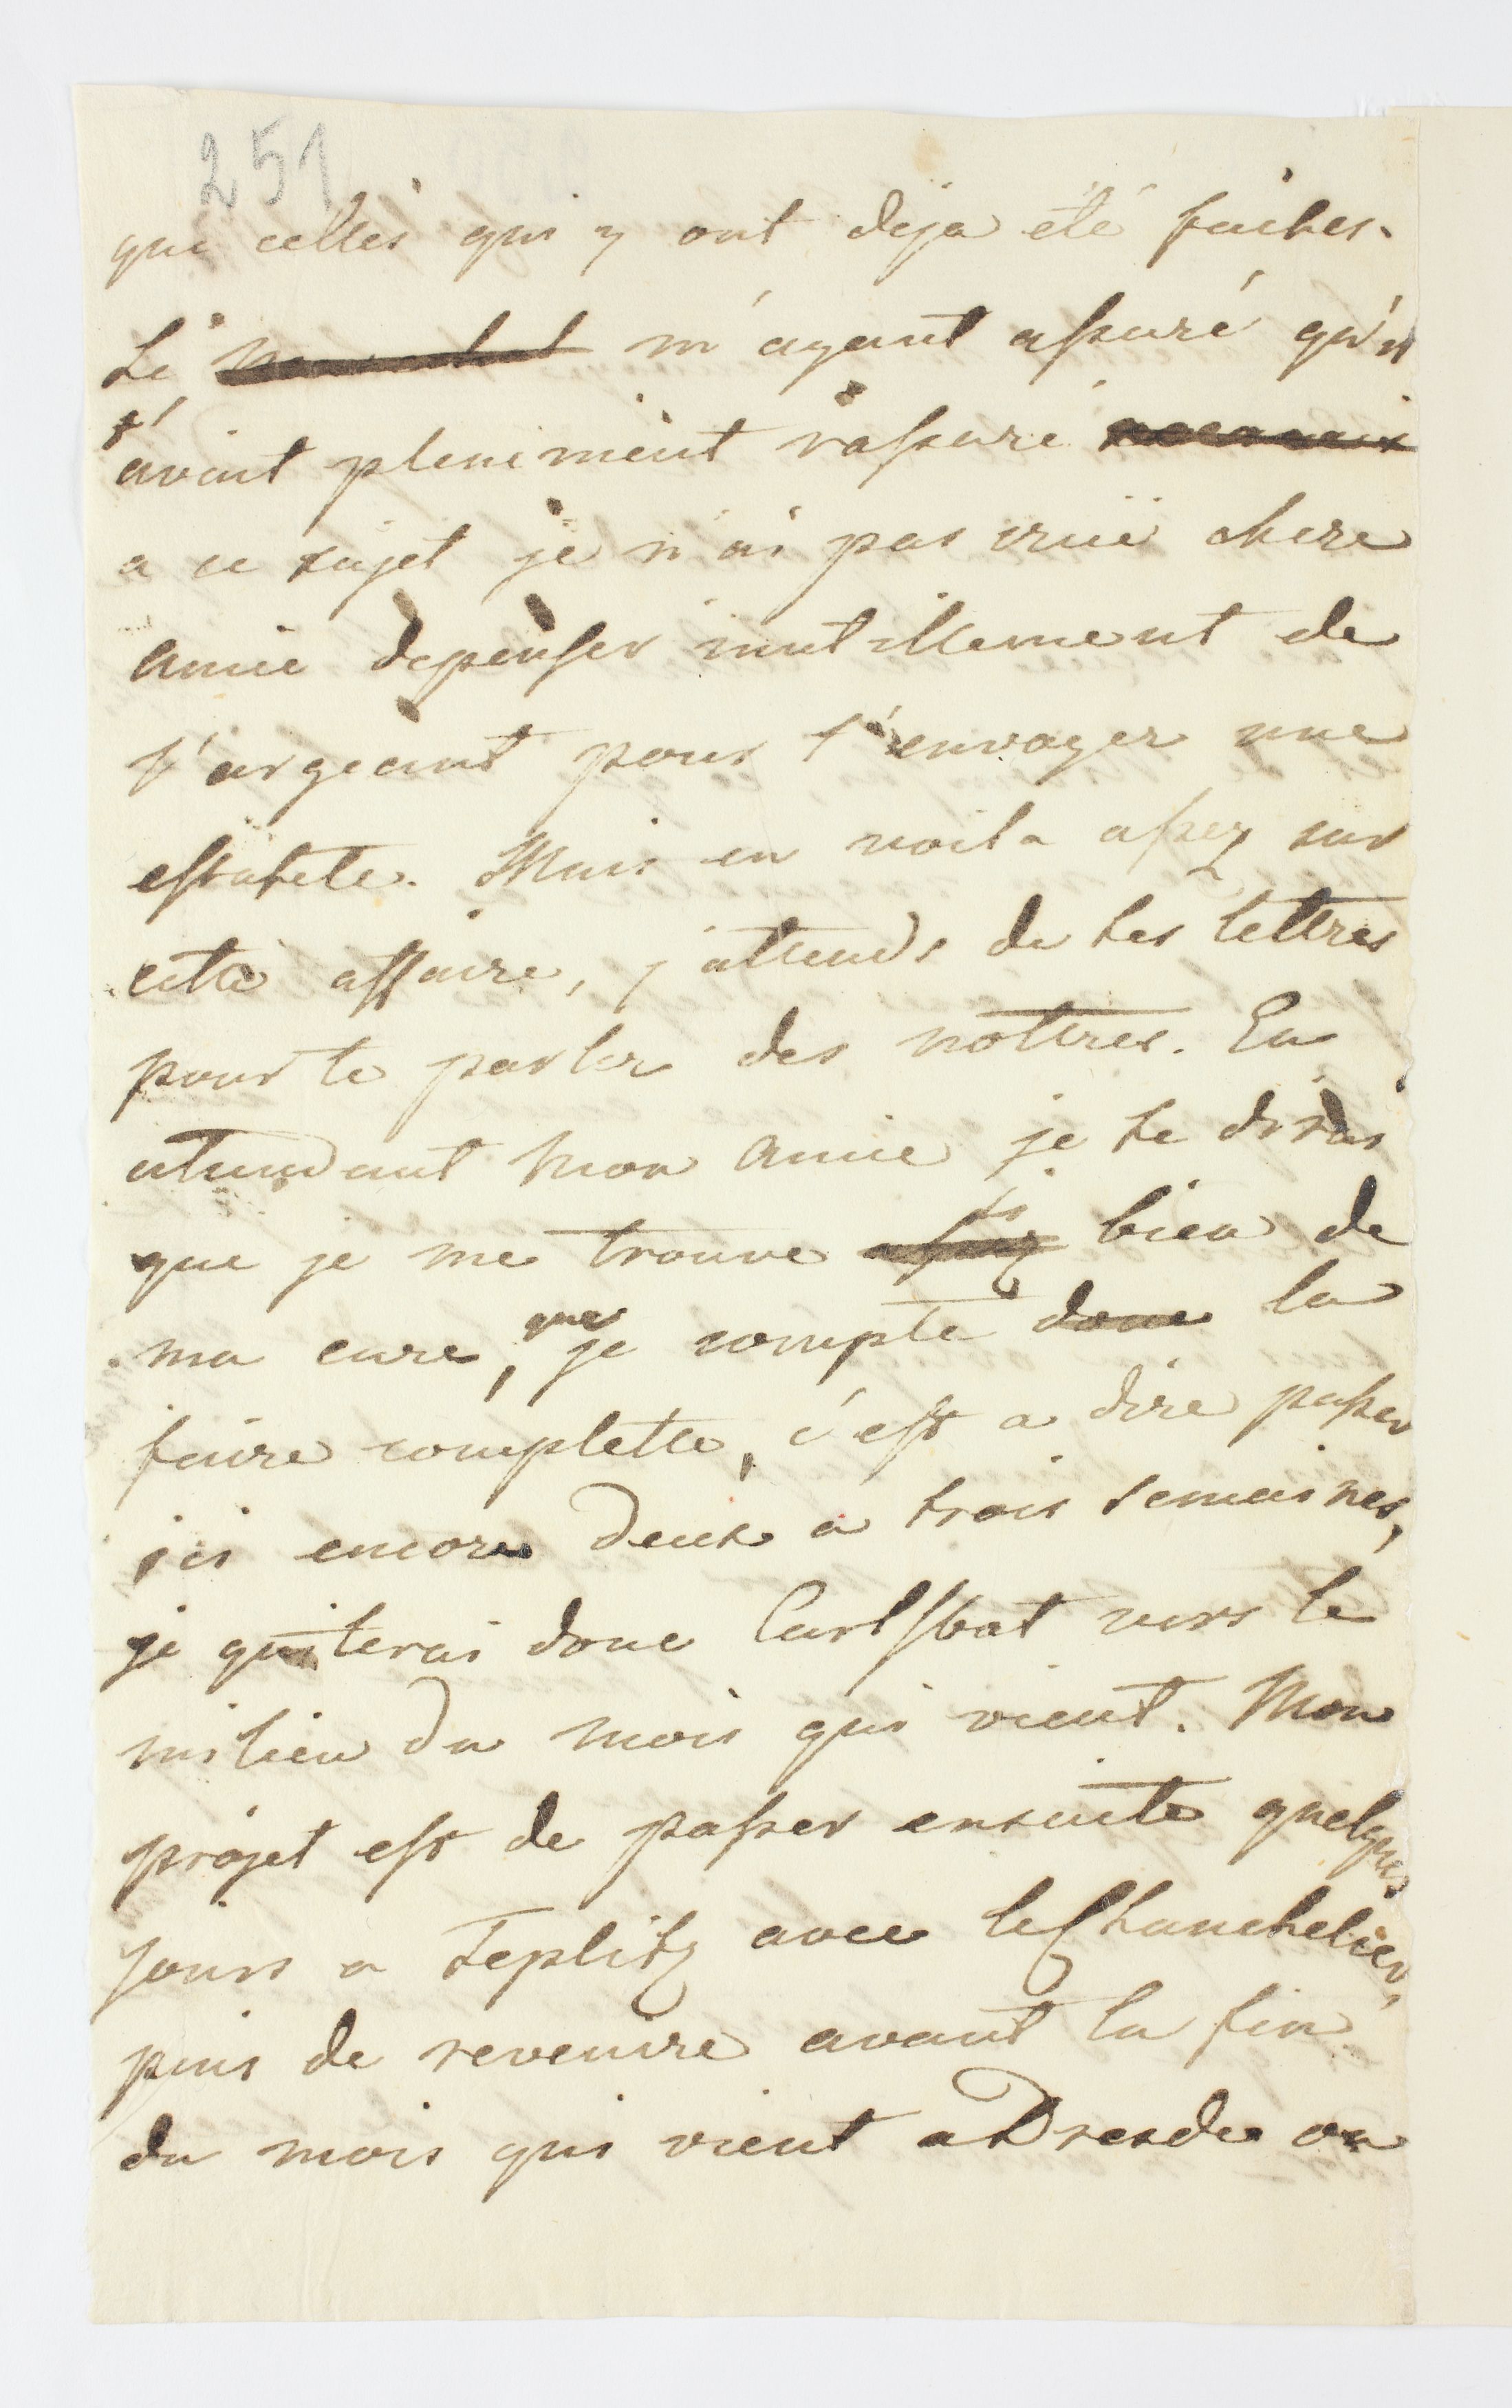 251
que celles qui y ont déja été faites.
Le m'ayant assuré qu'il
t'
avint plenement rassuré
a ce sujet je n'ai pas cruë chere
amie depenser inutillement de
l'argeant pour t'envoyer une
estafete. Mais en voila assez sur
cette affaire, j'attends de tes lettres
pour te parler des nottres. En
attendant mon amie je te dirai
si
que je me trouve assez bien de
que
ma cure, je compte donc la
faire complette, c'est a dire passer
ici encore deux a trois semaines,
je quiterai donc Carlsbat vers le
milieu du mois qui vient. Mon
projet est de passer ensuite quelques
jours a Teplitz avec le Chanchelier,
puis de revenire avant la fin
du mois qui vient a Dresde ou